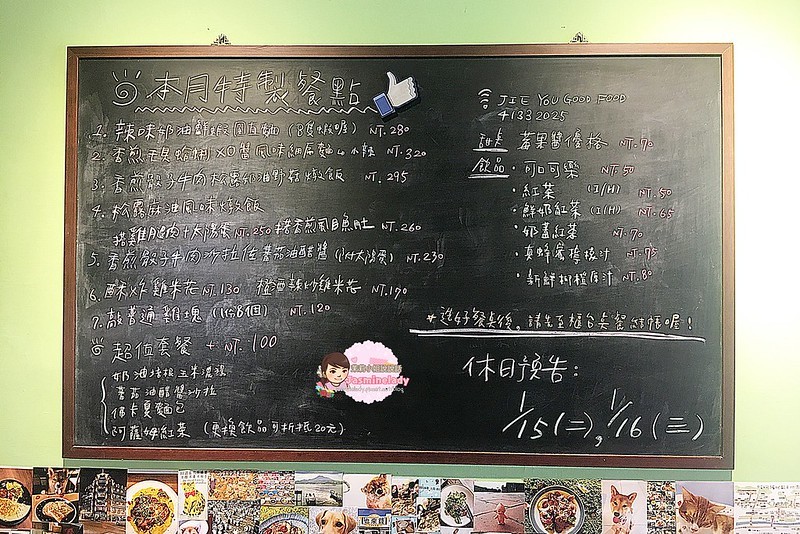 本月特製餐點
1. 辣味奶油鮮蝦圓直麵 (8隻蝦喔) NT.280
2. 香煎干貝蛤蜊XO醬風味細扁麵 小辣 NT.320
3. 香煎骰子牛肉松露奶油野菇燉飯 NT.295
4. 松露麻油風味燉飯
搭雞腿肉+太陽蛋 NT.250 搭香煎虱目魚肚 NT.260
5. 香煎骰子牛肉沙拉佐蕃茄油醋醬 (附太陽蛋) NT.230
6. 酥炸雞米花 NT.130 椒香辣炒雞米花 NT.190
7. 敲普通雞塊 (1份8個) NT.120
超值套餐 + NT.100
奶油培根玉米濃湯
蕃茄油醋醬沙拉
佛卡夏麵包
阿薩姆紅茶 (更換飲品可折抵20元)
JIE YOU GOOD FOOD
4133 2025
甜點 莓果醬優格 NT.70
飲品 可口可樂 NT.50
・紅茶 (I/H) NT.50
・鮮奶紅茶 (I/H) NT.65
・奶蓋紅茶 NT.70
・真蜂蜜檸檬汁 NT.75
・新鮮柳橙原汁 NT.80
*選好餐點後，請先至櫃台點餐結帳喔！
休日預告：
1/15(二), 1/16(三)
Jasminelady